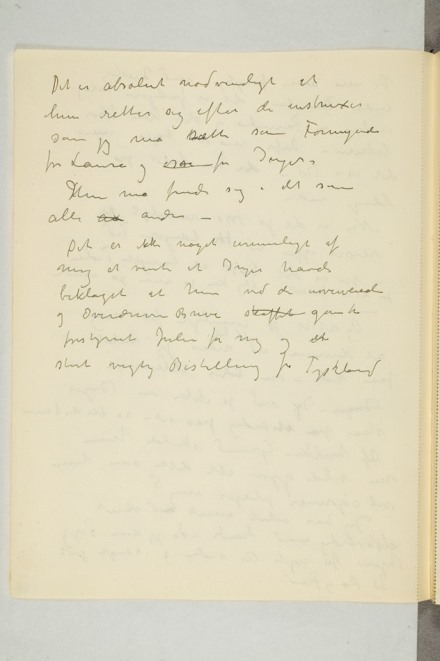 Det er absolut nødvendigt at
hun retter sig efter de instruxer
som jeg maa sætte som Formynder
for Laura og for Inger.
Hun maa finde sig i det som
alle andre —
Det er ikke noget urimeligt af
mig at vente at Inger havde
beklaget at hun ved de
og Breve
Julen for mig og
stort vigtig Bestilling for Tyskland